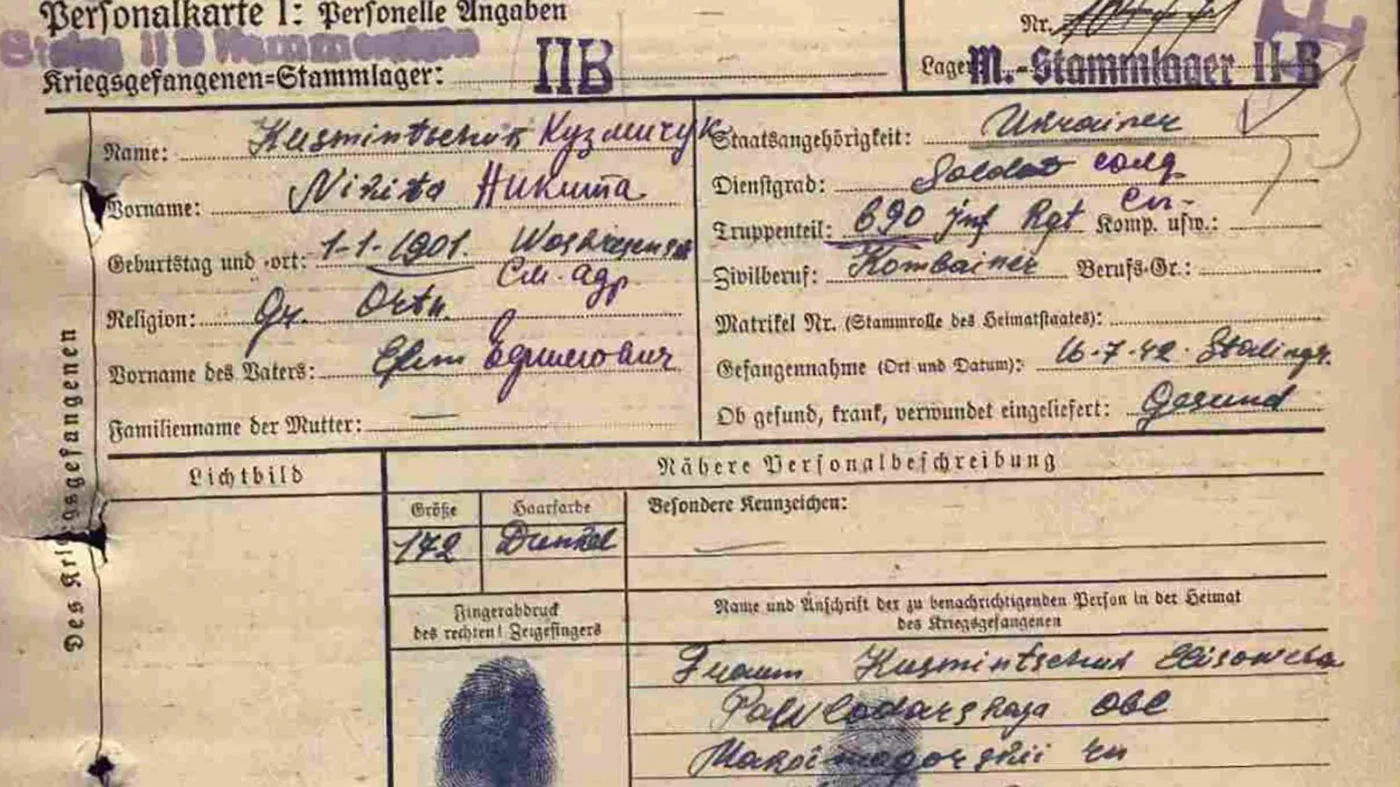 Personalkarte I: Personelle Angaben
Stalag II B Hammerstein
Kriegsgefangenen-Stammlager: IIB
Nr.
Lager: M.-Stammlager II-B
Name: Kusmintschuk Кузмичук
Vorname: Nikita Никита
Geburtstag und -ort: 1-1-1901.
См. адр
Religion: Gr. Orth.
Vorname des Vaters: Efim
Familienname der Mutter: —
Staatsangehörigkeit: Ukrainer
Dienstgrad: Soldat солд
Truppenteil: 690 Inf Rgt Komp. usw.:
Zivilberuf: Kombainer Berufs-Gr.:
Matrikel Nr. (Stammrolle des Heimatstaates):
Gefangennahme (Ort und Datum): 16-7-42. Stalingr.
Ob gesund, krank, verwundet eingeliefert: Gesund
Des Kriegsgefangenen
Lichtbild
Nähere Personalbeschreibung
Größe
172
Haarfarbe
Dunkel
Besondere Kennzeichen:
Fingerabdruck
des rechten! Zeigefingers
Name und Anschrift der zu benachrichtigenden Person in der Heimat
des Kriegsgefangenen
Kusmintschuk